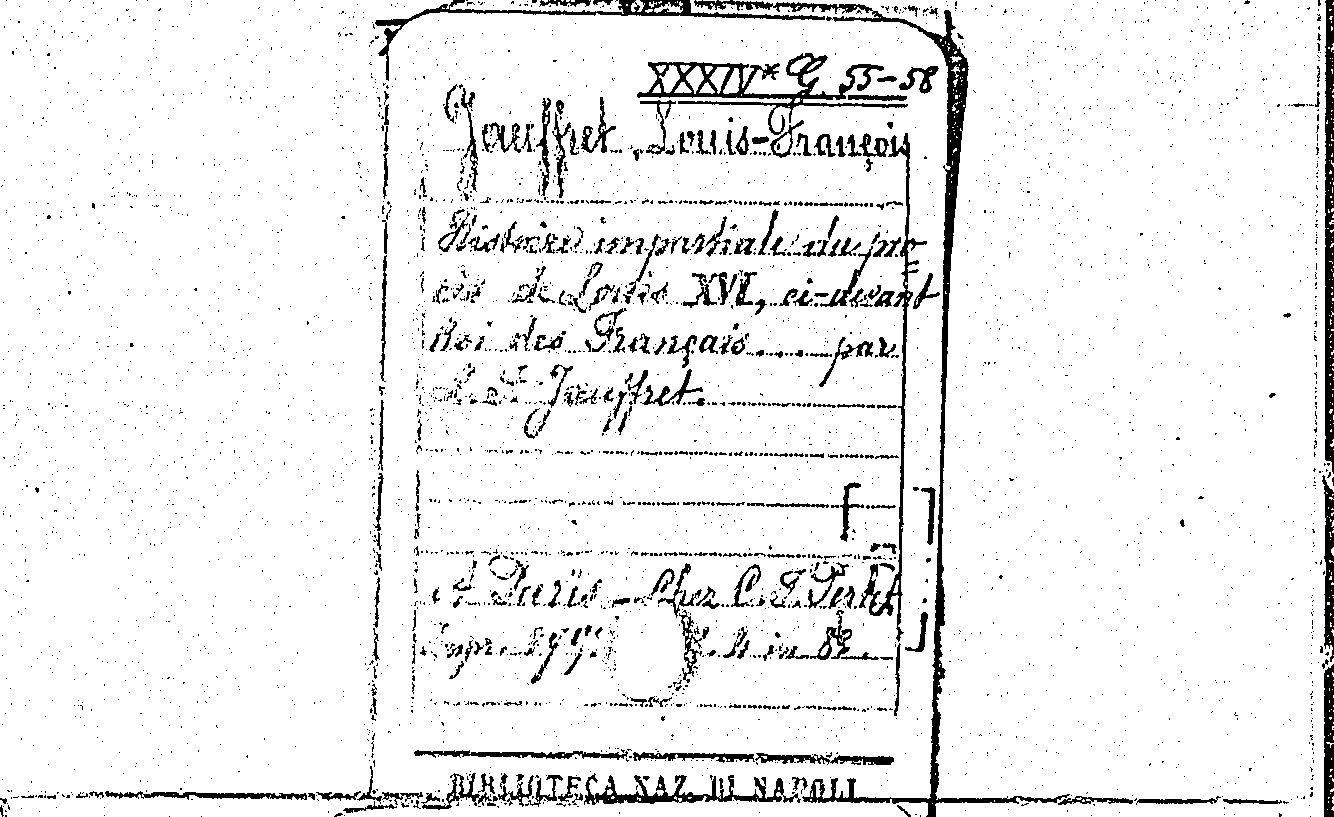 XXXIV* G 55-58
Jauffret, Louis-François
Histoire impartiale du pro=
cès de Louis XVI, ci-devant
Roi des Français... par
L. F. Jauffret.
A Paris - Chez C. F. Perlet
Impr. in 8º.
BIBLIOTECA NAZ. DI NAPOLI